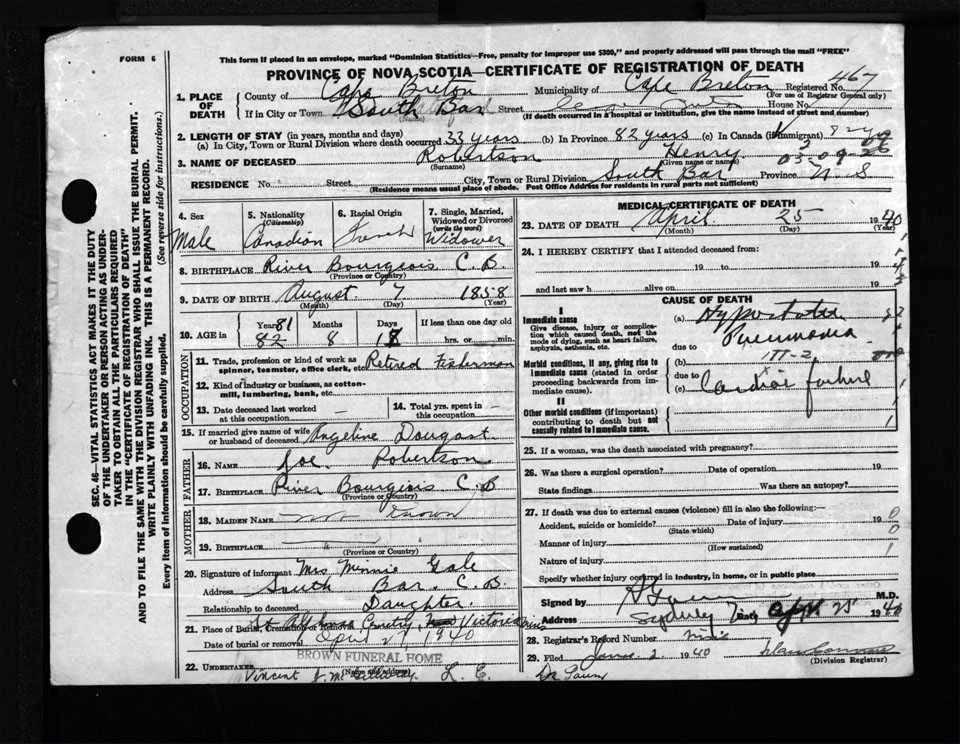 FORM 6
This form if placed in an envelope, marked "Dominion Statistics—Free, penalty for improper use $300," and properly addressed will pass through the mail "FREE"
PROVINCE OF NOVA SCOTIA—CERTIFICATE OF REGISTRATION OF DEATH
SEC. 46—VITAL STATISTICS ACT MAKES IT THE DUTY
OF THE UNDERTAKER OR PERSON ACTING AS UNDER-
TAKER TO OBTAIN ALL THE PARTICULARS REQUIRED
IN THE "CERTIFICATE OF REGISTRATION OF DEATH"
AND TO FILE THE SAME WITH THE DIVISION REGISTRAR WHO SHALL ISSUE THE BURIAL PERMIT.
WRITE PLAINLY WITH UNFADING INK. THIS IS A PERMANENT RECORD.
Every item of information should be carefully supplied. (See reverse side for instructions.)
1. PLACE OF DEATH County of Cape Breton Municipality of Cape Breton Registered No. 467
(For use of Registrar General only)
If in City or Town South Bar Street House No.
(Name) (If death occurred in a hospital or institution, give its name instead of street and number)
2. LENGTH OF STAY (in years, months and days)
(a) In City, Town or Rural Division where death occurred 33 years (b) In Province 82 years (c) In Canada (if immigrant)
3. NAME OF DECEASED Robertson Henry
(Surname) (Given name or names)
RESIDENCE No. Street City, Town or Rural Division South Bar Province N.S
(Residence means usual place of abode. Post Office Address for residents in rural parts not sufficient)
4. Sex Male
5. Nationality (Citizenship) Canadian
6. Racial Origin French
7. Single, Married, Widowed or Divorced (write the word) Widower
8. BIRTHPLACE River Bourgeois C.B.
(Province or Country)
9. DATE OF BIRTH August 7 1858
(Month) (Day) (Year)
10. AGE in Years 81 82 Months 8 Days 18 If less than one day old hrs. or min.
OCCUPATION
11. Trade, profession or kind of work as spinner, teamster, office clerk, etc. Retired Fisherman
12. Kind of industry or business, as cotton-mill, lumbering, bank, etc.
13. Date deceased last worked at this occupation —
14. Total yrs. spent in this occupation —
15. If married give name of wife or husband of deceased Angeline Dougast
FATHER
16. NAME Joe Robertson
17. BIRTHPLACE River Bourgeois C.B
(Province or Country)
MOTHER
18. MAIDEN NAME not known
19. BIRTHPLACE
(Province or Country)
20. Signature of informant Mrs Minnie Gale
Address South Bar C.B.
Relationship to deceased Daughter
21. Place of Burial, Cremation or Removal St Alphonsus Cemetry Victoria Mines
Date of burial or removal April 27 1940
BROWN FUNERAL HOME
22. UNDERTAKER Vincent
(Name or firm)
MEDICAL CERTIFICATE OF DEATH
23. DATE OF DEATH April 25 1940
(Month) (Day) (Year)
24. I HEREBY CERTIFY that I attended deceased from:
19 to 19
and last saw h alive on 19
CAUSE OF DEATH
I
Immediate cause
Give disease, injury or complication which caused death, not the mode of dying, such as heart failure, asphyxia, asthenia, etc.
(a) Hypostatic Pneumonia
due to
Morbid conditions, if any, giving rise to immediate cause (stated in order proceeding backwards from immediate cause).
(b)
due to
(c) Cardiac failure
II
Other morbid conditions (if important) contributing to death but not causally related to Immediate cause.
25. If a woman, was the death associated with pregnancy?
26. Was there a surgical operation? Date of operation 19
State findings Was there an autopsy?
27. If death was due to external causes (violence) fill in also the following:—
Accident, suicide or homicide? Date of injury 19
(State which)
Manner of injury
(How sustained)
Nature of injury
Specify whether injury occurred in industry, in home, or in public place
Signed by M.D.
Address Sydney Date Apr 25 1940
28. Registrar's Record Number
29. Filed 2 1940
(Division Registrar)